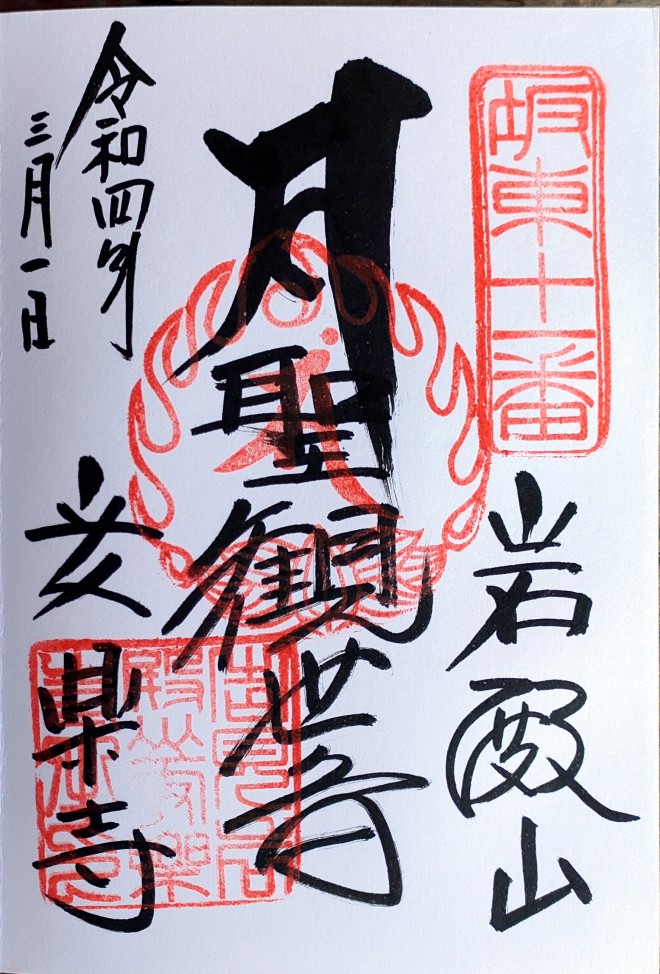 坂東十一番
岩殿山
聖観世音
安楽寺
令和四年
三月一日